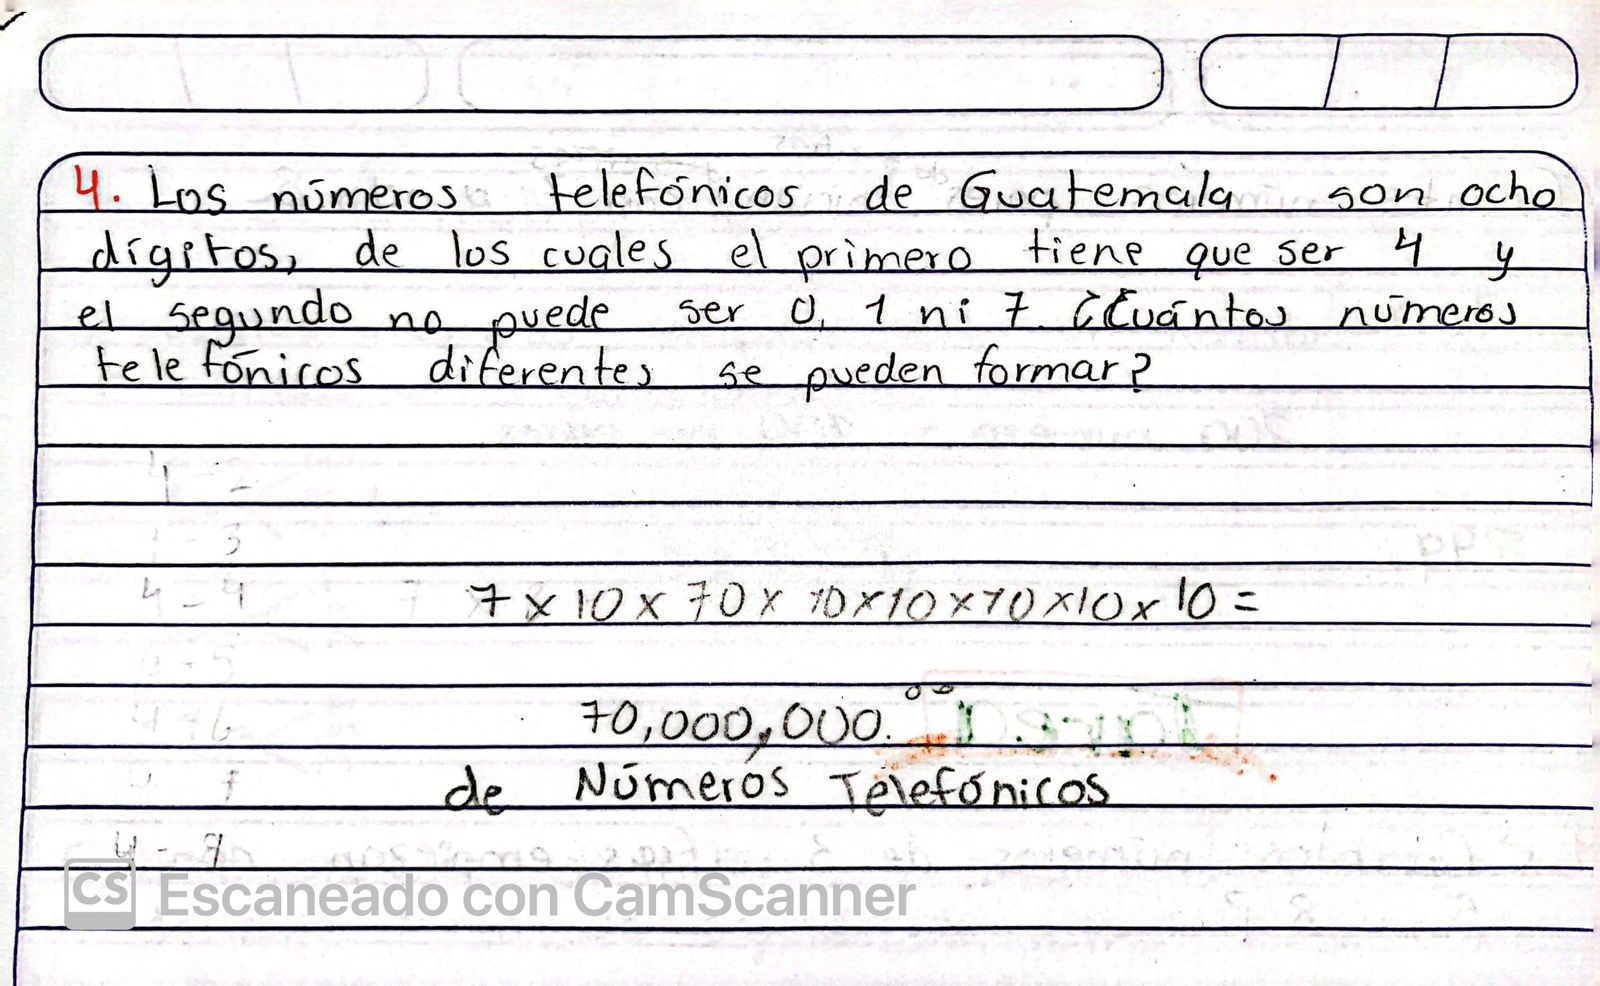 4. Los números telefónicos de Guatemala son ocho
dígitos, de los cuales el primero tiene que ser 4 y
el segundo no puede ser 0, 1 ni 7. ¿Cuántos números
telefónicos diferentes se pueden formar?
4 - 4
7 x 10 x 10 x 10 x 10 x 10 x 10 x 10 =
70,000,000.
de Números Telefónicos
4 - 7
CS Escaneado con CamScanner